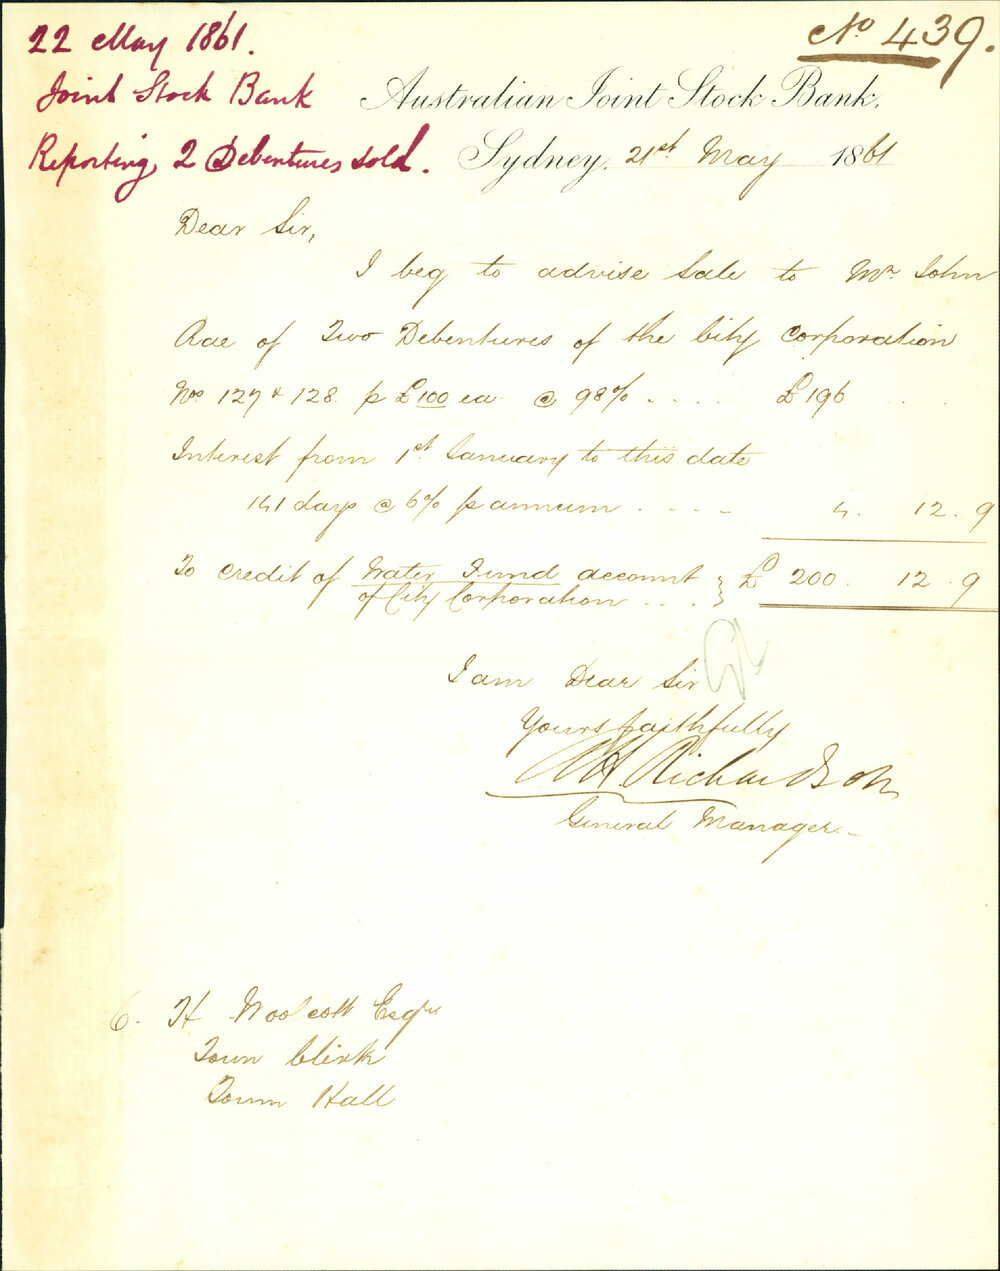 22 May 1861.
Joint Stock Bank
Reporting 2 Debentures sold.
No 439.
Australian Joint Stock Bank,
Sydney, 21st May 1861
Dear Sir,
I beg to advise Sale to Mr John
Rae of Two Debentures of the City Corporation
Nos 127 & 128 p £100 ea @ 98% .... £196 ....
Interest from 1st January to this date
141 days @ 6% p annum .... 4. 12. 9
To Credit of Water Fund account
of City Corporation .... } £ 200. 12. 9
I am Dear Sir
Yours faithfully
H. Richardson
General Manager
C. H Woolcott Esqre
Town Clerk
Town Hall